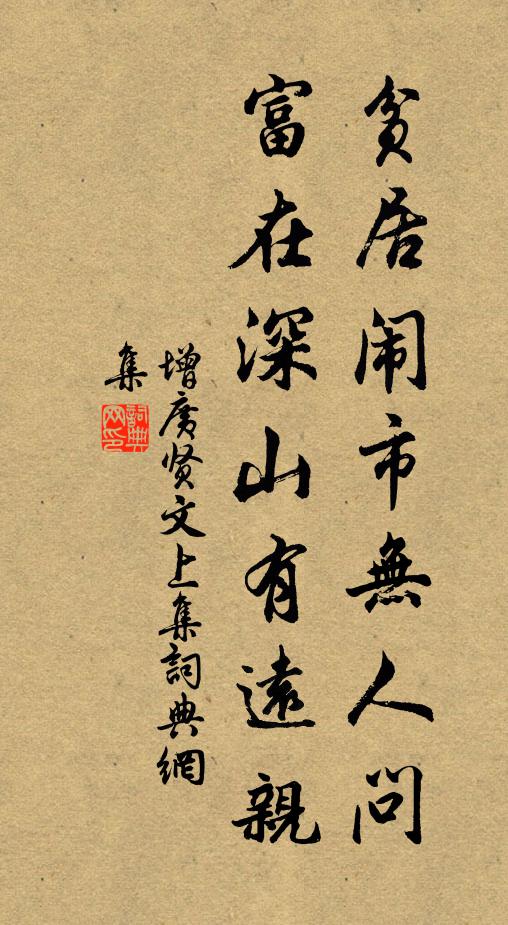 贫居闹市無人问
富在深山有遠親
增廣贤文上集詞典網
集
詞典网印